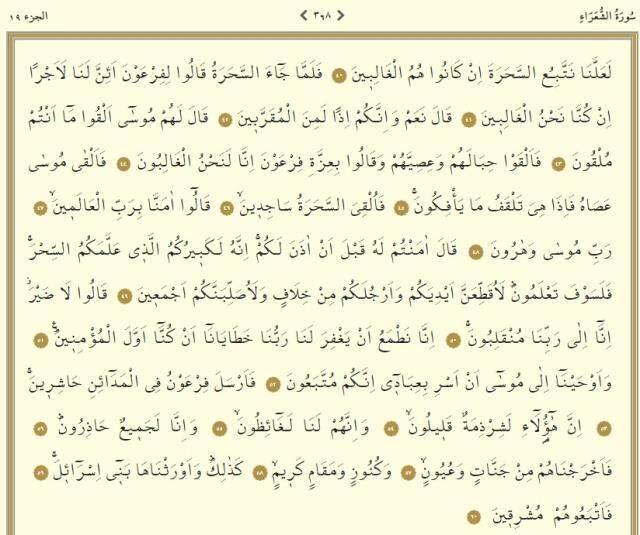 سُورَةُ الشُّعَرَاءِ ٣٦٨ الجزء ١٩
لَعَلَّنَا نَتَّبِعُ السَّحَرَةَ اِنْ كَانُوا هُمُ الْغَالِب۪ينَ ٤٠ فَلَمَّا جَٓاءَ السَّحَرَةُ قَالُوا لِفِرْعَوْنَ اَئِنَّ لَنَا لَاَجْرًا
اِنْ كُنَّا نَحْنُ الْغَالِب۪ينَ ٤١ قَالَ نَعَمْ وَاِنَّكُمْ اِذًا لَمِنَ الْمُقَرَّب۪ينَ ٤٢ قَالَ لَهُمْ مُوسٰٓى اَلْقُوا مَٓا اَنْتُمْ
مُلْقُونَ ٤٣ فَاَلْقَوْا حِبَالَهُمْ وَعِصِيَّهُمْ وَقَالُوا بِعِزَّةِ فِرْعَوْنَ اِنَّا لَنَحْنُ الْغَالِبُونَ ٤٤ فَاَلْقٰى مُوسٰى
عَصَاهُ فَاِذَا هِىَ تَلْقَفُ مَا يَأْفِكُونَۚ ٤٥ فَاُلْقِىَ السَّحَرَةُ سَاجِد۪ينَۙ ٤٦ قَالُٓوا اٰمَنَّا بِرَبِّ الْعَالَم۪ينَۙ ٤٧
رَبِّ مُوسٰى وَهٰرُونَ ٤٨ قَالَ اٰمَنْتُمْ لَهُ قَبْلَ اَنْ اٰذَنَ لَكُمْۚ اِنَّهُ لَكَب۪يرُكُمُ الَّذ۪ى عَلَّمَكُمُ السِّحْرَۚ
فَلَسَوْفَ تَعْلَمُونَۜ لَاُقَطِّعَنَّ اَيْدِيَكُمْ وَاَرْجُلَكُمْ مِنْ خِلَافٍ وَلَاُصَلِّبَنَّكُمْ اَجْمَع۪ينَ ٤٩ قَالُوا لَا ضَيْرَۘ
اِنَّٓا اِلٰى رَبِّنَا مُنْقَلِبُونَۚ ٥٠ اِنَّا نَطْمَعُ اَنْ يَغْفِرَ لَنَا رَبُّنَا خَطَايَانَٓا اَنْ كُنَّٓا اَوَّلَ الْمُؤْمِن۪ينَۜ ٥١
وَاَوْحَيْنَٓا اِلٰى مُوسٰٓى اَنْ اَسْرِ بِعِبَاد۪ٓى اِنَّكُمْ مُتَّبَعُونَ ٥٢ فَاَرْسَلَ فِرْعَوْنُ فِى الْمَدَٓائِنِ حَاشِر۪ينَۚ
٥٣ اِنَّ هٰٓؤُ۬لَٓاءِ لَشِرْذِمَةٌ قَل۪يلُونَۙ ٥٤ وَاِنَّهُمْ لَنَا لَغَٓائِظُونَۙ ٥٥ وَاِنَّا لَجَم۪يعٌ حَاذِرُونَۜ ٥٦
فَاَخْرَجْنَاهُمْ مِنْ جَنَّاتٍ وَعُيُونٍۙ ٥٧ وَكُنُوزٍ وَمَقَامٍ كَر۪يمٍۙ ٥٨ كَذٰلِكَۜ وَاَوْرَثْنَاهَا بَن۪ٓى اِسْرَٓائ۪لَۜ ٥٩
فَاَتْبَعُوهُمْ مُشْرِق۪ينَ ٦٠